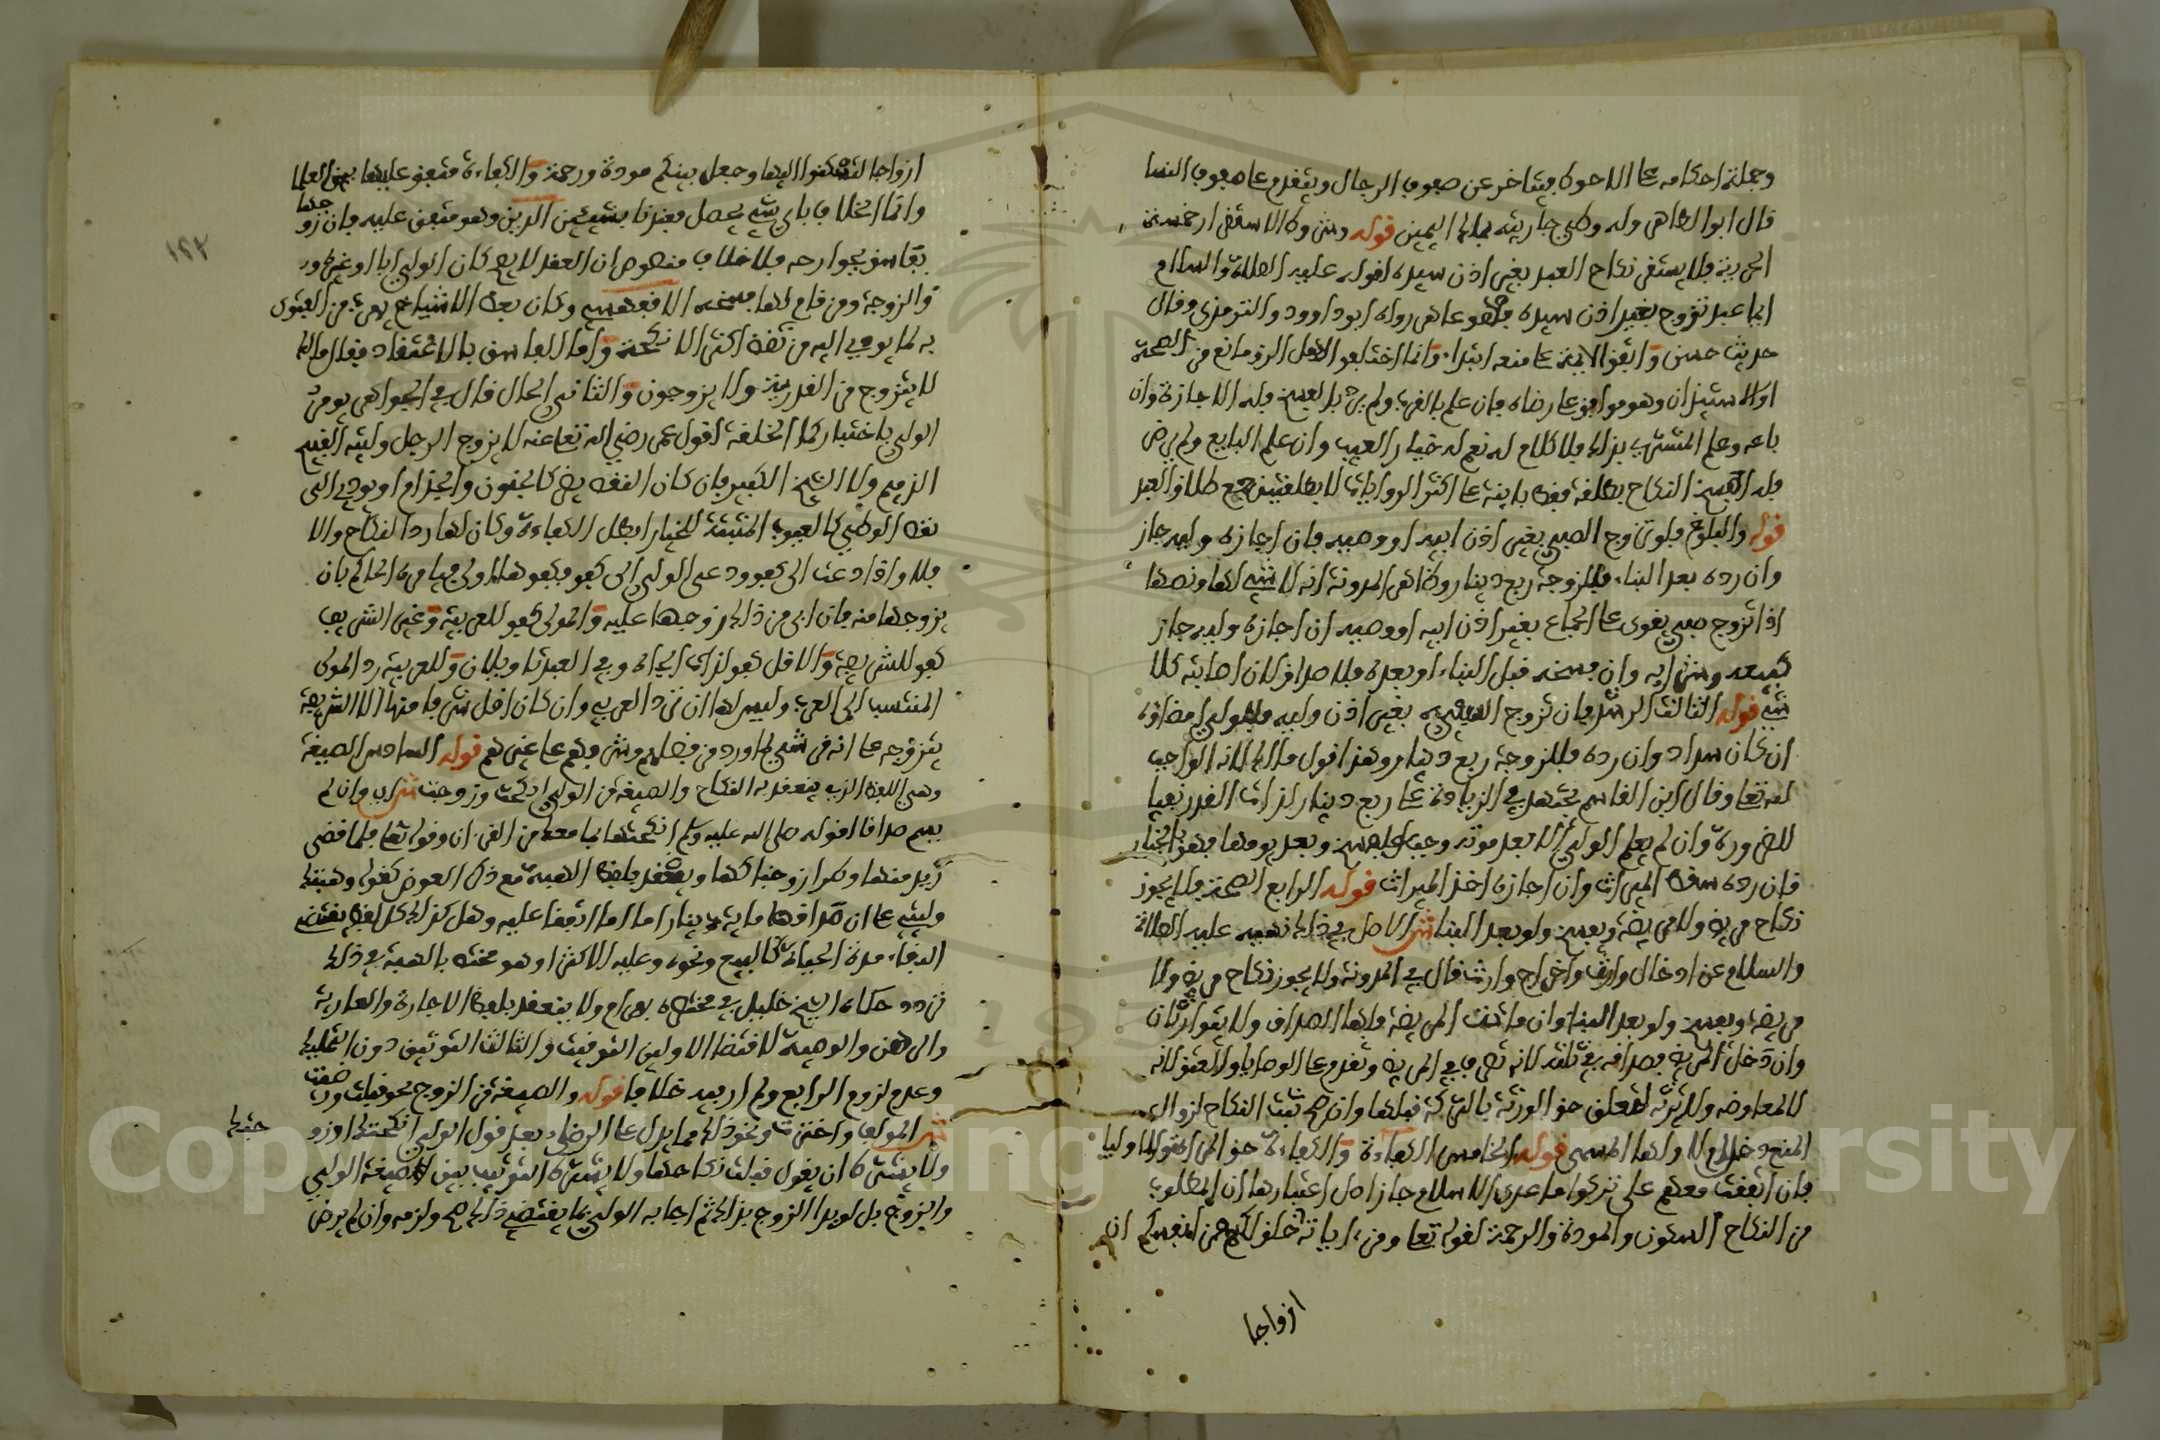 وجملة احكامه على الاحوط فيتاخر عن صفوف الرجال ويتقدم على صفوف النسا
قال ابو الطاهر وله وطئ جاريته بملك اليمين قوله
الحرية فلا يستقر نكاح العبد بغير اذن سيده لقوله عليه الصلاة والسلام
ايما عبد تزوج بغير اذن سيده فهو عاهر رواه ابو داوود والترمذي وقال
حديث حسن واتفق الايمة على منعه ابتداء وانما اختلفوا هل الرق مانع من الصحة
او الاستيذان وهو موافق على رضاه فان علم بالقرب ولم يرد بالعيب فله الاجازة وان
باعه وعلم المشتري بذلك فلا كلام له نعم له خيار العيب وان علم البايع ولم يرض
فله فسخ النكاح بطلقة فقط باينة على اكثر الروايات لا بطلقتين جميع طلاق العبد
قوله والبلوغ فلو تزوج الصبي بغير اذن ابيه او وصيه فان اجازه وليه جاز
وان رده بعد البناء فللزوجة ربع دينار وظاهر المدونة انه لا شيء لها ونصها
اذا تزوج صبي يقوى على الجماع بغير اذن ابيه او وصيه ان اجازه وليه جاز
كبيعه وشرايه وان فسخه قبل البناء او بعده فلا صداق لان اصابته كلا
شيء قوله الثالث الرشد فان تزوج السفيه بغير اذن وليه فللولي امضاؤه
ان كان سدادا وان رده فللزوجة ربع دينار وهذا قول مالك لانه الواجب
لله تعالى وقال ابن القاسم يجتهد في الزيادة على ربع دينار لذات القدر نفيا
للضرورة وان لم يعلم الولي الا بعد موته وجب الفسخ وبعد موتها فهو بالخيار
فان رده سقط الميراث وان اجازه اخذ الميراث قوله الرابع الصحة فلا يجوز
نكاح مريض ولا مريضة ويفسخ ولو بعد البنا ش الاصل في ذلك نهيه عليه الصلاة
والسلام عن ادخال وارث واخراج وارث قال في المدونة ولا يجوز نكاح مريض ولا
مريضة ويفسخ ولو بعد البنا وان ماتت المريضة فلها الصداق ولا يتوارثان
وان دخل المريض فصداقه في ثلثه لانه تصرف في المرض وتقدم على الوصايا والعتق لانه
كالمعاوضة ولا ترثه لتعلق حق الورثة بالتركة قبلها وان صح ثبت النكاح لزوال
المنع دخل ام لا ولها المسمى قوله الخامس الكفاءة والكفاءة حق المراة والاوليا
فان اتفقت معهم على تركها ما عدى الاسلام جاز اصل اعتبارها ان المطلوب
من النكاح السكون والمودة والرحمة لقوله تعالى ومن اياته ان خلق لكم من انفسكم ان
ازواجا
١٢٢
ازواجا لتسكنوا اليها وجعل بينكم مودة ورحمة والكفاءة متفق عليها بين العلما
وانما الخلاف باي شيء يحصل فعندنا بشيئين الدين وهو متفق عليه فان زوجها
بفاسق بجوارحه فلا خلاف منصوص ان العقد لا يصح كان الولي ابا او غيره ورد
وللزوجة ومن قام لها فسخه الا فعه وكان بعض الاشياخ يهرب من الفتوى
به لما يودي اليه من نقض اكثر الانكحة واما الفاسق بالاعتقاد فقال مالك
لا يتزوج من القدرية ولا يزوجون والثاني الحال قال في الجواهر يومر
الولي باختيار كامل الخلقة لقول عمر رضي الله تعالى عنه لا يزوج الرجل وليته القبيح
الذميم ولا الشيخ الكبير فان كان النقص يضر كالجنون والجذام او يودي الى
نقص الوطئ كالعيوب المثبتة للخيار ابطل الكفاءة وكان لها رد النكاح والا
فلا واذا دعت الى كفوء ودعى الولي الى كفوء فكفوءها اولى فيامره الحاكم بان
يزوجها منه فان ابى من ذلك زوجها عليه والمولى كفو للعربية وغير الشريف
كفو للشريفة والاقل كفو لذات الجاه وفي العبد تاويلان وللعربية رد المولى
المنتسب الى العرب وليس لها ان ترد العربي وان كان اقل شرفا منها الا الشريفة
يتزوجها على انه من شيء لما ورد من فضلهم وشرفهم على غيرهم قوله السادس الصيغة
وهي اللفظ الذي ينعقد به النكاح والصيغة من الولي انكحت وزوجت ش اي وان لم
يسم صداقا لقوله صلى الله عليه وسلم انكحتها بما معك من القرءان وقوله تعالى فلما قضى
زيد منها وطرا زوجناكها وينعقد بلفظ الهبة مع ذكر العوض كقوله وهبتك
وليتي على ان صداقها ماية دينار اما اتفقا عليه وهل كذلك كل لفظ يقتضي
البقاء مدة الحياة كالبيع ونحوه وعليه الاكثر او هو مختص بالهبة في ذلك
تردد حكاه الشيخ خليل في مختصره بهرام ولا ينعقد بلفظ الاجارة والعارية
والرهن والوصية لاقتضا الاولين التوقيت والثالث التوثيق دون التمليك
وعدم لزوم الرابع ولم ار فيه خلافا قوله والصيغة من الزوج نحو قبلت ورضيت
ش المولف واخترت ونحو ذلك مما يدل على الرضا بعد قول الولي انكحتك او زو
جتك
ولا يشترط ان يقول قبلت نكاحها ولا يشترط الترتيب بين صيغة الولي
والزوج بل لو بدا الزوج بذلك ثم اجابه الولي بما يقتضي ذلك صح ولزمه وان لم يرض